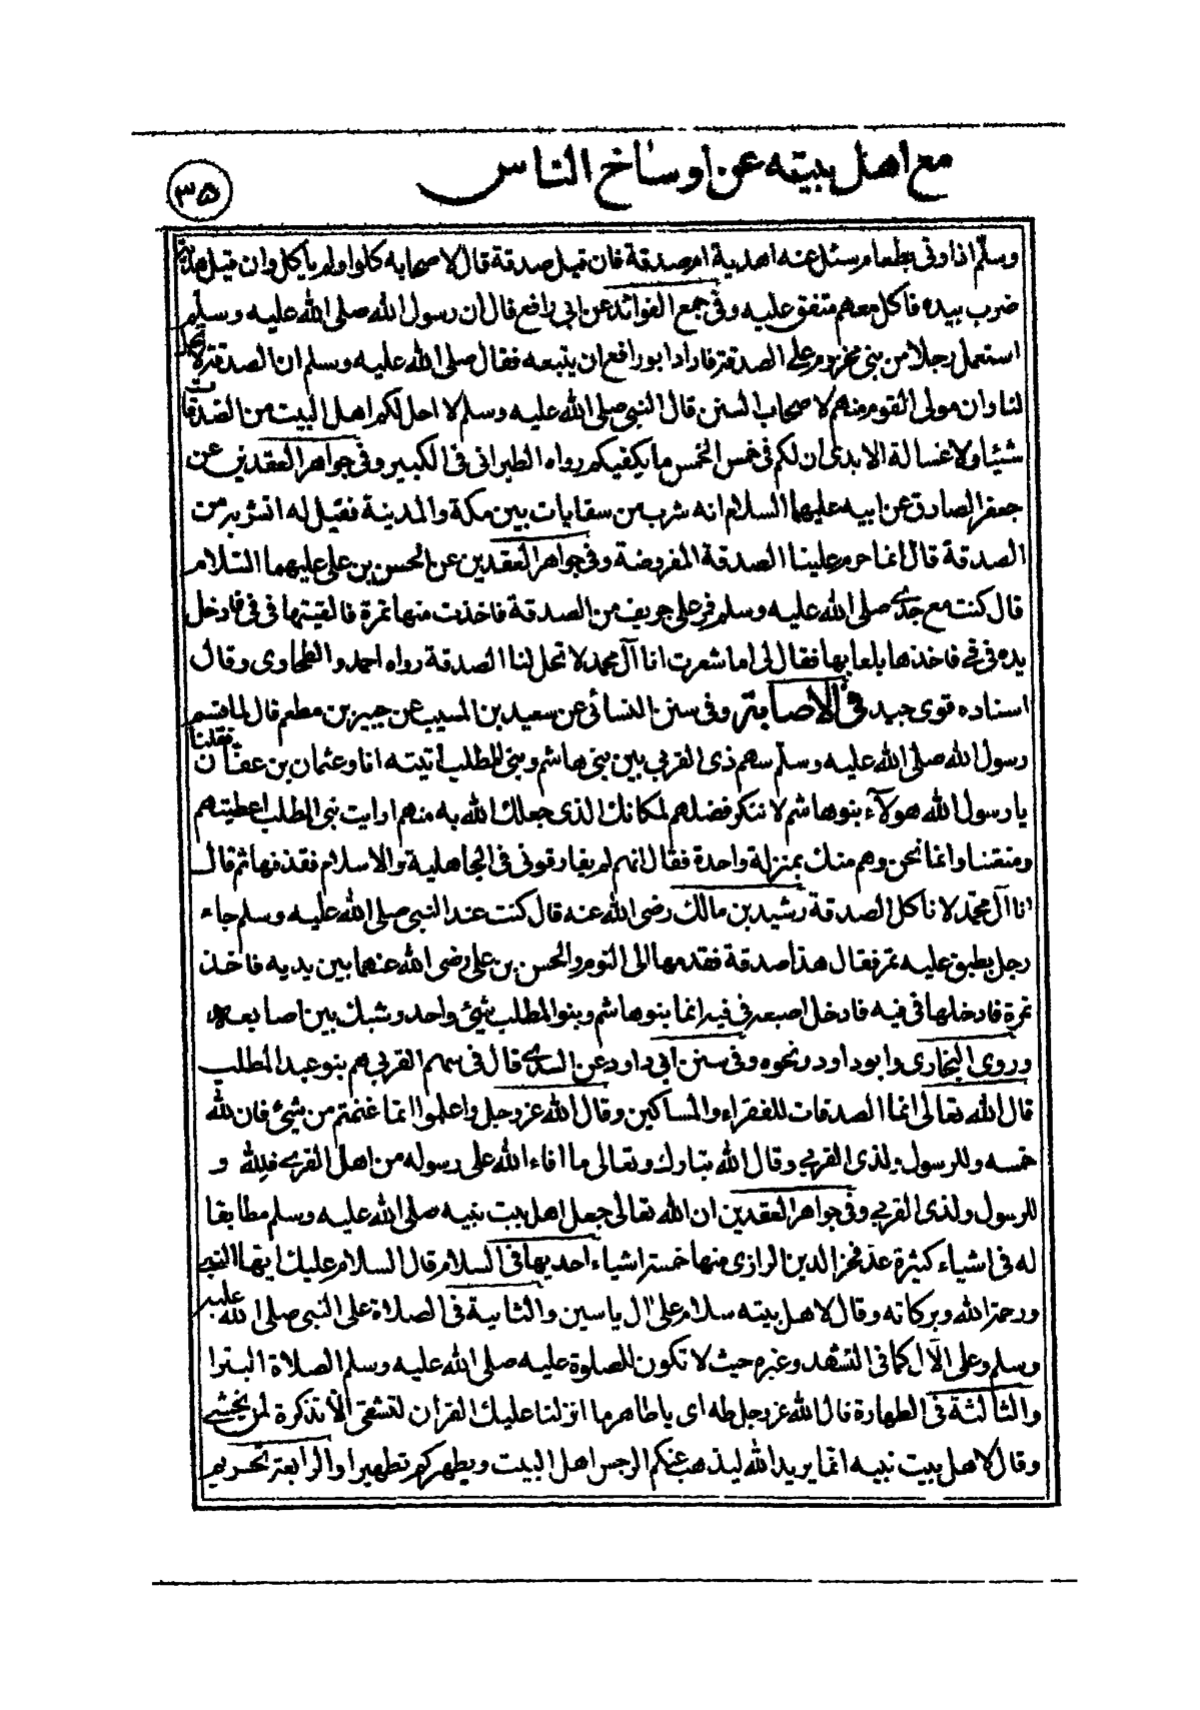 مع اهل بيته عن اوساخ الناس
٣٥
وسلم اذا اوتى بطعام سئل عنه اهدية ام صدقة فان قيل صدقة قال لاصحابه كلوا ولم ياكل وان قيل هدية
ضرب بيده فاكل معهم متفق عليه وفى جمع الفوائد عن ابى رافع قال ان رسول الله صلى الله عليه وسلم
استعمل رجلا من بنى مخزوم على الصدقة فاراد ابو رافع ان يتبعه فقال صلى الله عليه وسلم ان الصدقة لا تحل
لنا وان مولى القوم منهم لاصحاب السنن قال النبى صلى الله عليه وسلم لا احل لكم اهل البيت من الصدقات
شيئا ولا غسالة الايدى ان لكم فى خمس الخمس ما يكفيكم رواه الطبرانى فى الكبير وفى جواهر العقدين عن
جعفر الصادق عن ابيه عليهما السلام انه شرب من سقايات بين مكة والمدينة فقيل له اتشرب من
الصدقة قال انما حرم علينا الصدقة المفروضة وفى جواهر العقدين عن الحسن بن على عليهما السلام
قال كنت مع جدى صلى الله عليه وسلم فمر على جريف من الصدقة فاخذت منها تمرة فالقيتها فى فى فادخل
يده فى فى فاخذها بلعابها فقال لى اما شعرت انا آل محمد لا تحل لنا الصدقة رواه احمد والطحاوى وقال
اسناده قوى جيد فى الاصابة وفى سنن النسائى عن سعيد بن المسيب عن جبير بن مطعم قال لما قسم
رسول الله صلى الله عليه وسلم سهم ذى القربى بين بنى هاشم وبنى المطلب اتيته انا وعثمان بن عفان فقلنا
يا رسول الله هولآء بنو هاشم لا ننكر فضلهم لمكانك الذى جعلك الله به منهم ارايت بنى المطلب اعطيتهم
ومنعتنا وانما نحن وهم منك بمنزلة واحدة فقال انهم لم يفارقونى فى الجاهلية والاسلام فقذفها ثم قال
انا آل محمد لا ناكل الصدقة رشيد بن مالك رضى الله عنه قال كنت عند النبى صلى الله عليه وسلم جاء
رجل بطبق عليه تمر فقال هذا صدقة فقدمها الى القوم والحسن بن على رضى الله عنهما بين يديه فاخذ
تمرة فادخلها فى فيه فادخل اصبعه فى فيه انما بنو هاشم وبنو المطلب شئ واحد وشبك بين اصابعه
وروى البخارى وابو داود ونحوه وفى سنن ابى داود عن السدى قال فى سهم القربى هم بنو عبد المطلب
قال الله تعالى انما الصدقات للفقراء والمساكين وقال الله عز وجل واعلموا انما غنمتم من شئ فان لله
خمسه وللرسول ولذى القربى وقال الله تبارك وتعالى ما افاء الله على رسوله من اهل القرى فلله و
للرسول ولذى القربى وفى جواهر العقدين ان الله تعالى جعل اهل بيت نبيه صلى الله عليه وسلم مطابقا
له فى اشياء كثيرة عد فخر الدين الرازى منها خمسة اشياء احديها فى السلام قال السلام عليك ايها النبى
ورحمة الله وبركاته وقال لاهل بيته سلام على ال ياسين والثانية فى الصلاة على النبى صلى الله عليه
وسلم وعلى الآل كما فى التشهد وغيره حيث لا تكون الصلوة عليه صلى الله عليه وسلم الصلاة البترا
والثالثة فى الطهارة قال الله عز وجل طه اى يا طاهر ما انزلنا عليك القرآن لتشقى الا تذكرة لمن يخشى
وقال لاهل بيت نبيه انما يريد الله ليذهب عنكم الرجس اهل البيت ويطهركم تطهيرا والرابعة تحريم